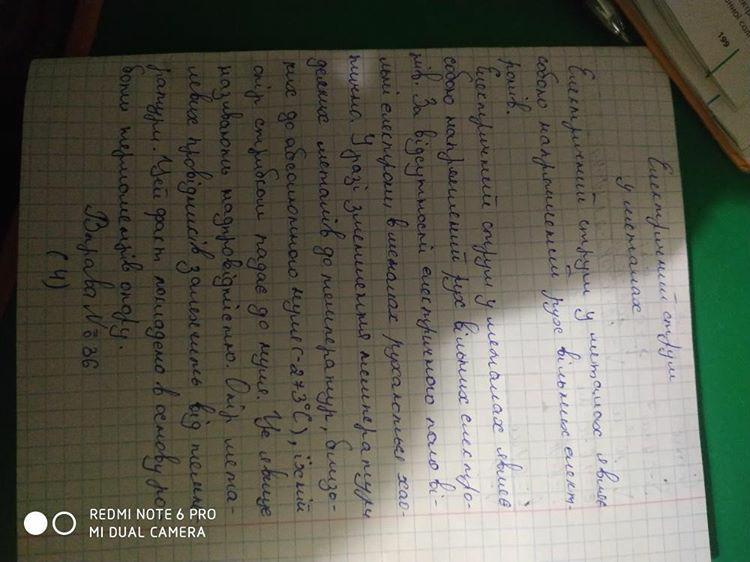 Електричний струм
у металах
Електричний струм у металах являє
собою напрямлений рух вільних елект-
ронів.
Електричний струм у металах являє
собою напрямлений рух вільних електро-
нів. За відсутності електричного поля ві-
льні електрони в металах рухаються хао-
тично. У разі зменшення температури
деяких металів до температур, близь-
ких до абсолютного нуля (-273°C), їхній
опір стрибком падає до нуля. Це явище
називають надпровідністю. Опір мета-
левих провідників залежить від темпе-
ратури. Цей факт покладено в основу ро-
боти термометрів опору.
Вправа №36
(4)
199
REDMI NOTE 6 PRO
MI DUAL CAMERA